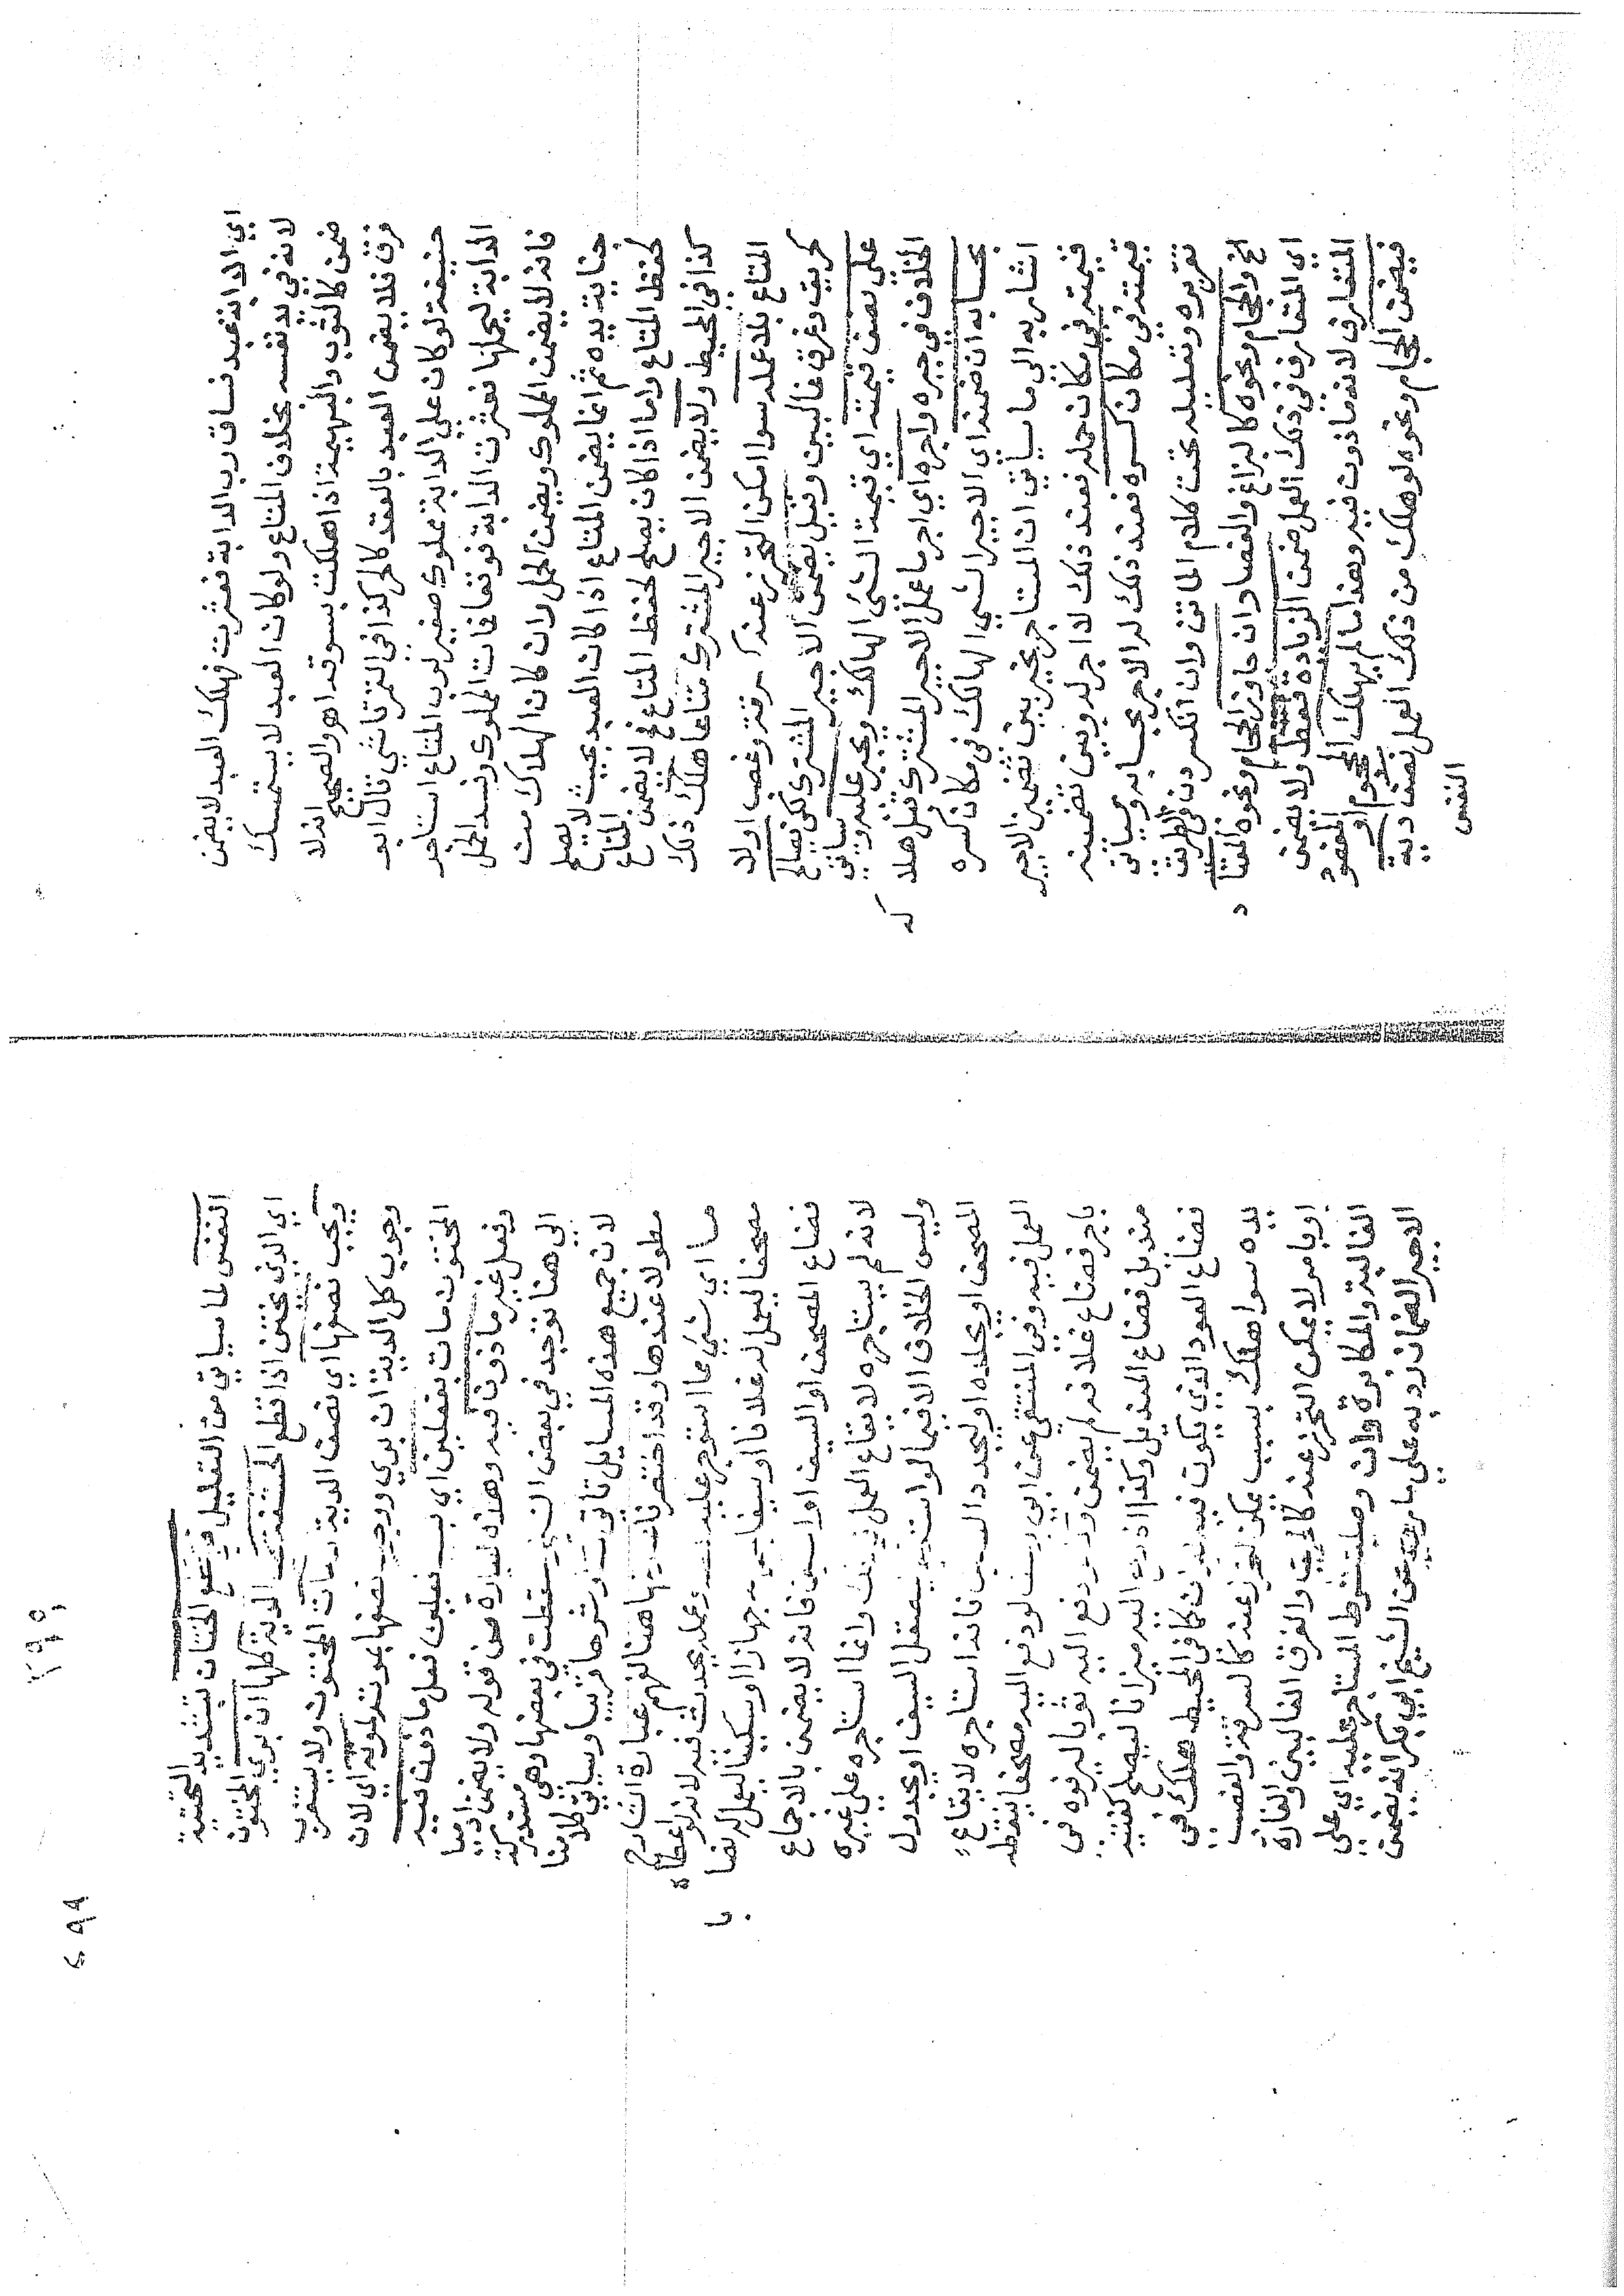 اي الدابة عبد فساق رب الدابة فعثرت فهلك العبد لا يضمن
لانه في يد نفسه بخلاف المتاع ولو كان العبد لا يستمسك
ضمن كالثوب والبهيمة اذا هلكت بسوقه اهو الصحيح انه لا
فرق فلا يضمن العبد بالعقد كالحر كذا في التمرتاشي قال ابو
حنيفة لو كان علي الدابة مملوك صغير لرب المتاع استاجر
الدابة ليحملها فعثرت الدابة فوقعا فمات المملوك وفسد الحمل
فانه لا يضمن المملوك ويضمن الحمل وان كان الهلاك من
جناية يده ثم انما يضمن المتاع اذا كان العبد بحيث لا يصلح
لحفظ المتاع واما اذا كان يصلح لحفظ المتاع فلا يضمن المتاع
كذا في المحيط ولا يضمن الاجير المشترك متاعا هلك ذلك
المتاع بلا عمله سوا امكن التحرز عنه كسرقة وغصب اولا
كحريق وغرق غالبين وقيل يضمن الاجير المشترك لكن يصالح
علي نصف قيمته اي قيمة الشي الهالك ويجبر عليه وسياتي
الخلاف في جبره واجره اي اجر ما عمل الاجير المشترك قبل هلا
كه
بحسابه ان ضمنه اي الاجير الشي الهالك في مكان كسره
اشار به الى ما سياتي ان المستاجر مخير بين تضمين الاجير
قيمته في مكان حمله فعند ذلك لا اجر له وبين تضمينه
قيمته في مكان كسره فعند ذلك له الاجر بحسابه وسياتي
تقريره وتعليله تحت كلام الماتن وان انكسر دن في الطريق
الخ والحجام ونحوه كالبزاغ والفصاد ان جاوز الحجام ونحوه المعتا
د
اي المتعارف في ذلك العمل ضمن الزيادة فقط ولا يضمن
المتعارف لانه ماذون فيه وهذا ما لم يهلك المحجوم او المفصود
فيضمن الحجام ونحوه لو هلك من ذلك العمل نصف دية
النفس
٢٩٩
النفس لما سياتي من التعليل فرع لو الختان بتشديد التحتية
اي الذي يختن اذا قطع الحشفة الدية كلها ان بري المختون
ويجب نصفها اي نصف الدية ان مات المختون ولا يستغرب
وجوب كل الدية ان بري ووجب نصفها بموته لموته اي لان
المختون مات بفعلين اي بسبب فعلين فعل ماذون فيه
وفعل غير ماذون فيه وهذه العبارة من قوله ولا يضمن ادميا
الى هنا توجد في بعض النسخ وسقطت في بعضها وهي مستدركة
لان جميع هذه المسايل تاتي متنا وشرحا قريبا وسياتي كلامنا
مطولا عندها وقد اختصرنا هنا لفهم عبارة الشارح
ما اي شي مما استوجر عليه وعمله يحدث فيه لانه لو اعطاه
مصحفا ليعمل له غلافا او سيفا جهازا او سكينا ليعمل له نصا
با
فضاع المصحف او السيف او السكين فانه لا يضمن بالاجماع
لانه لم يستاجره لايقاع العمل في ذلك وانما استاجره على غيره
وليس الخلاف الا فيما لو استاجره ليصقل السيف او يجدول
المصحف او يجلده او ليحدد السكين فانه استاجره لايقاع
العمل فيه وفي المنتقى عن ابي يوسف لو دفع اليه مصحفا ينقطه
باجر فضاع غلافه لم يضمن ولو دفع اليه ثوبا ليرفوه في
منديل فضاع المنديل وكذا اذا دفع اليه ميزانا ليصلح كفتيه
فضاع العود الذي يكون فيه الميزان كما في المحيط هلك في
يده سوا هلك بسبب يمكن التحرز عنه كالسرقة والغصب
او بامر لا يمكن التحرز عنه كالحريق والغرق الغالبين والغارة
الغالبة والمكابرة وان وصلية شرط المستاجر عليه اي على
الاجير الضمان وبه علي ما روي عن الشيخ ابي بكر انه يضمن